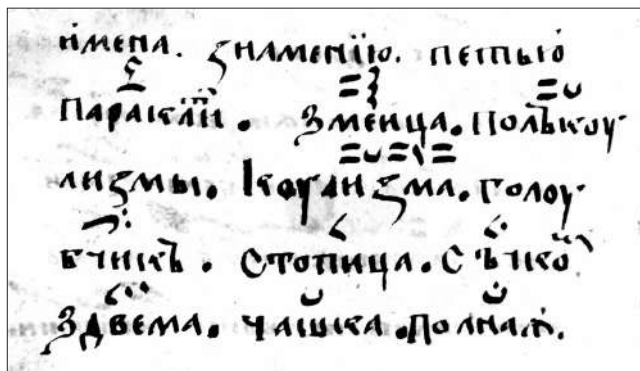 и҆мена. ѕнаменїю. петью
параклит. Змеица. Полъкоу
лиѕмы. Ікоулиѕма. голоу
бчикъ. Стопица.
Здвема. чашка. Полнаѧ.